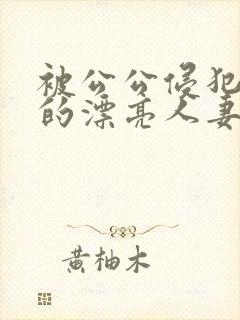 被公公侵犯
的漂亮人妻
黄柚木